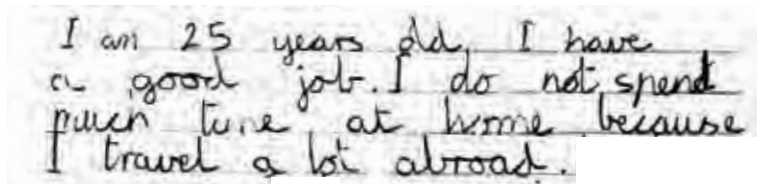 I am 25 years old, I have
a good job. I do not spend
much time at home because
I travel a lot abroad.